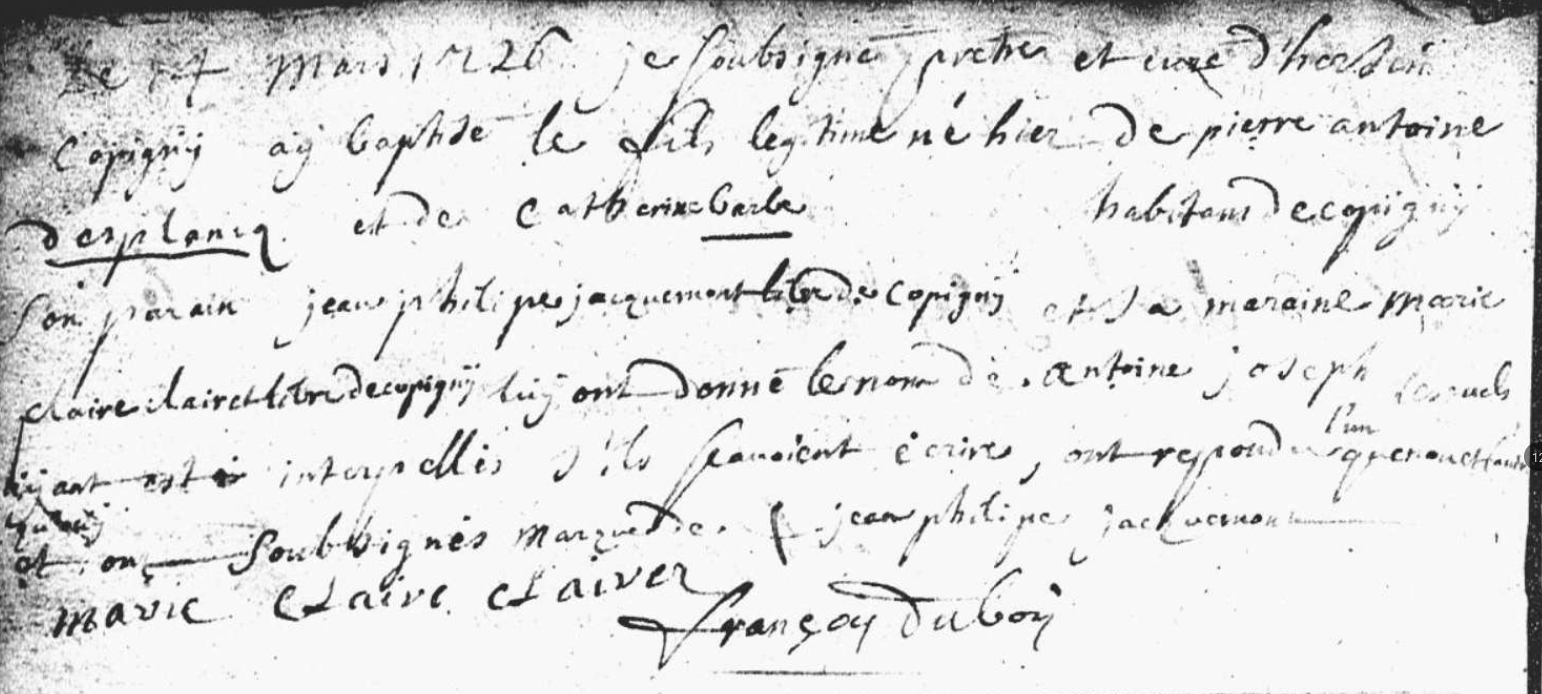 Le 14 Mars 1726 je soubsigné pretre et curé d'hersin
Copigny aÿ baptisé le fils legitime né hier de pierre antoine
desplancq et de Catherine barbe habitans de copigny
son parain jean philipe jacquemont libre de Copigny et sa maraine marie
claire clairet libre de copigny luy ont donné le nom de antoine joseph lesquels
aijant esté interpellés s'ils scavoient ecrire, ont respondu l'un que non et l'autre
qu'ouy
et ont soubsignés marque de jean philipe jacquemont
marie claire clairet
françoy duboy